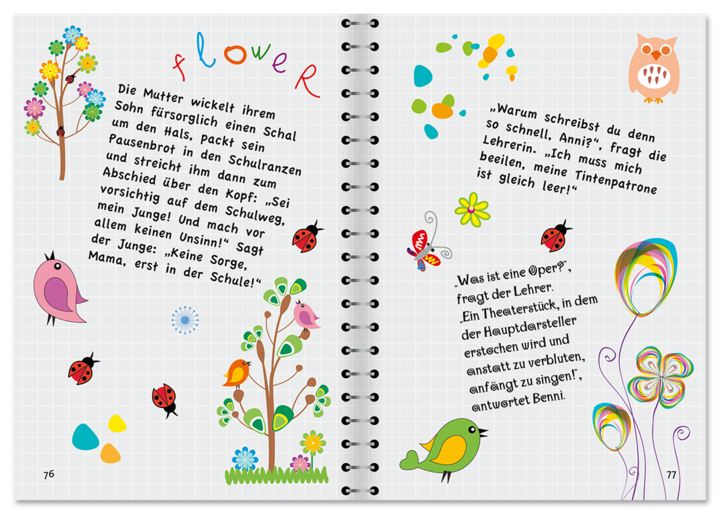 fLOWER
Die Mutter wickelt ihrem
Sohn fürsorglich einen Schal
um den Hals, packt sein
Pausenbrot in den Schulranzen
und streicht ihm dann zum
Abschied über den Kopf: „Sei
vorsichtig auf dem Schulweg,
mein Junge! Und mach vor
allem keinen Unsinn!“ Sagt
der Junge: „Keine Sorge,
Mama, erst in der Schule!“
76
„Warum schreibst du denn
so schnell, Anni?“, fragt die
Lehrerin. „Ich muss mich
beeilen, meine Tintenpatrone
ist gleich leer!“
„Was ist eine Oper?“,
fragt der Lehrer.
„Ein Theaterstück, in dem
der Hauptdarsteller
erstochen wird und
anstatt zu verbluten,
anfängt zu singen!“,
antwortet Benni.
77